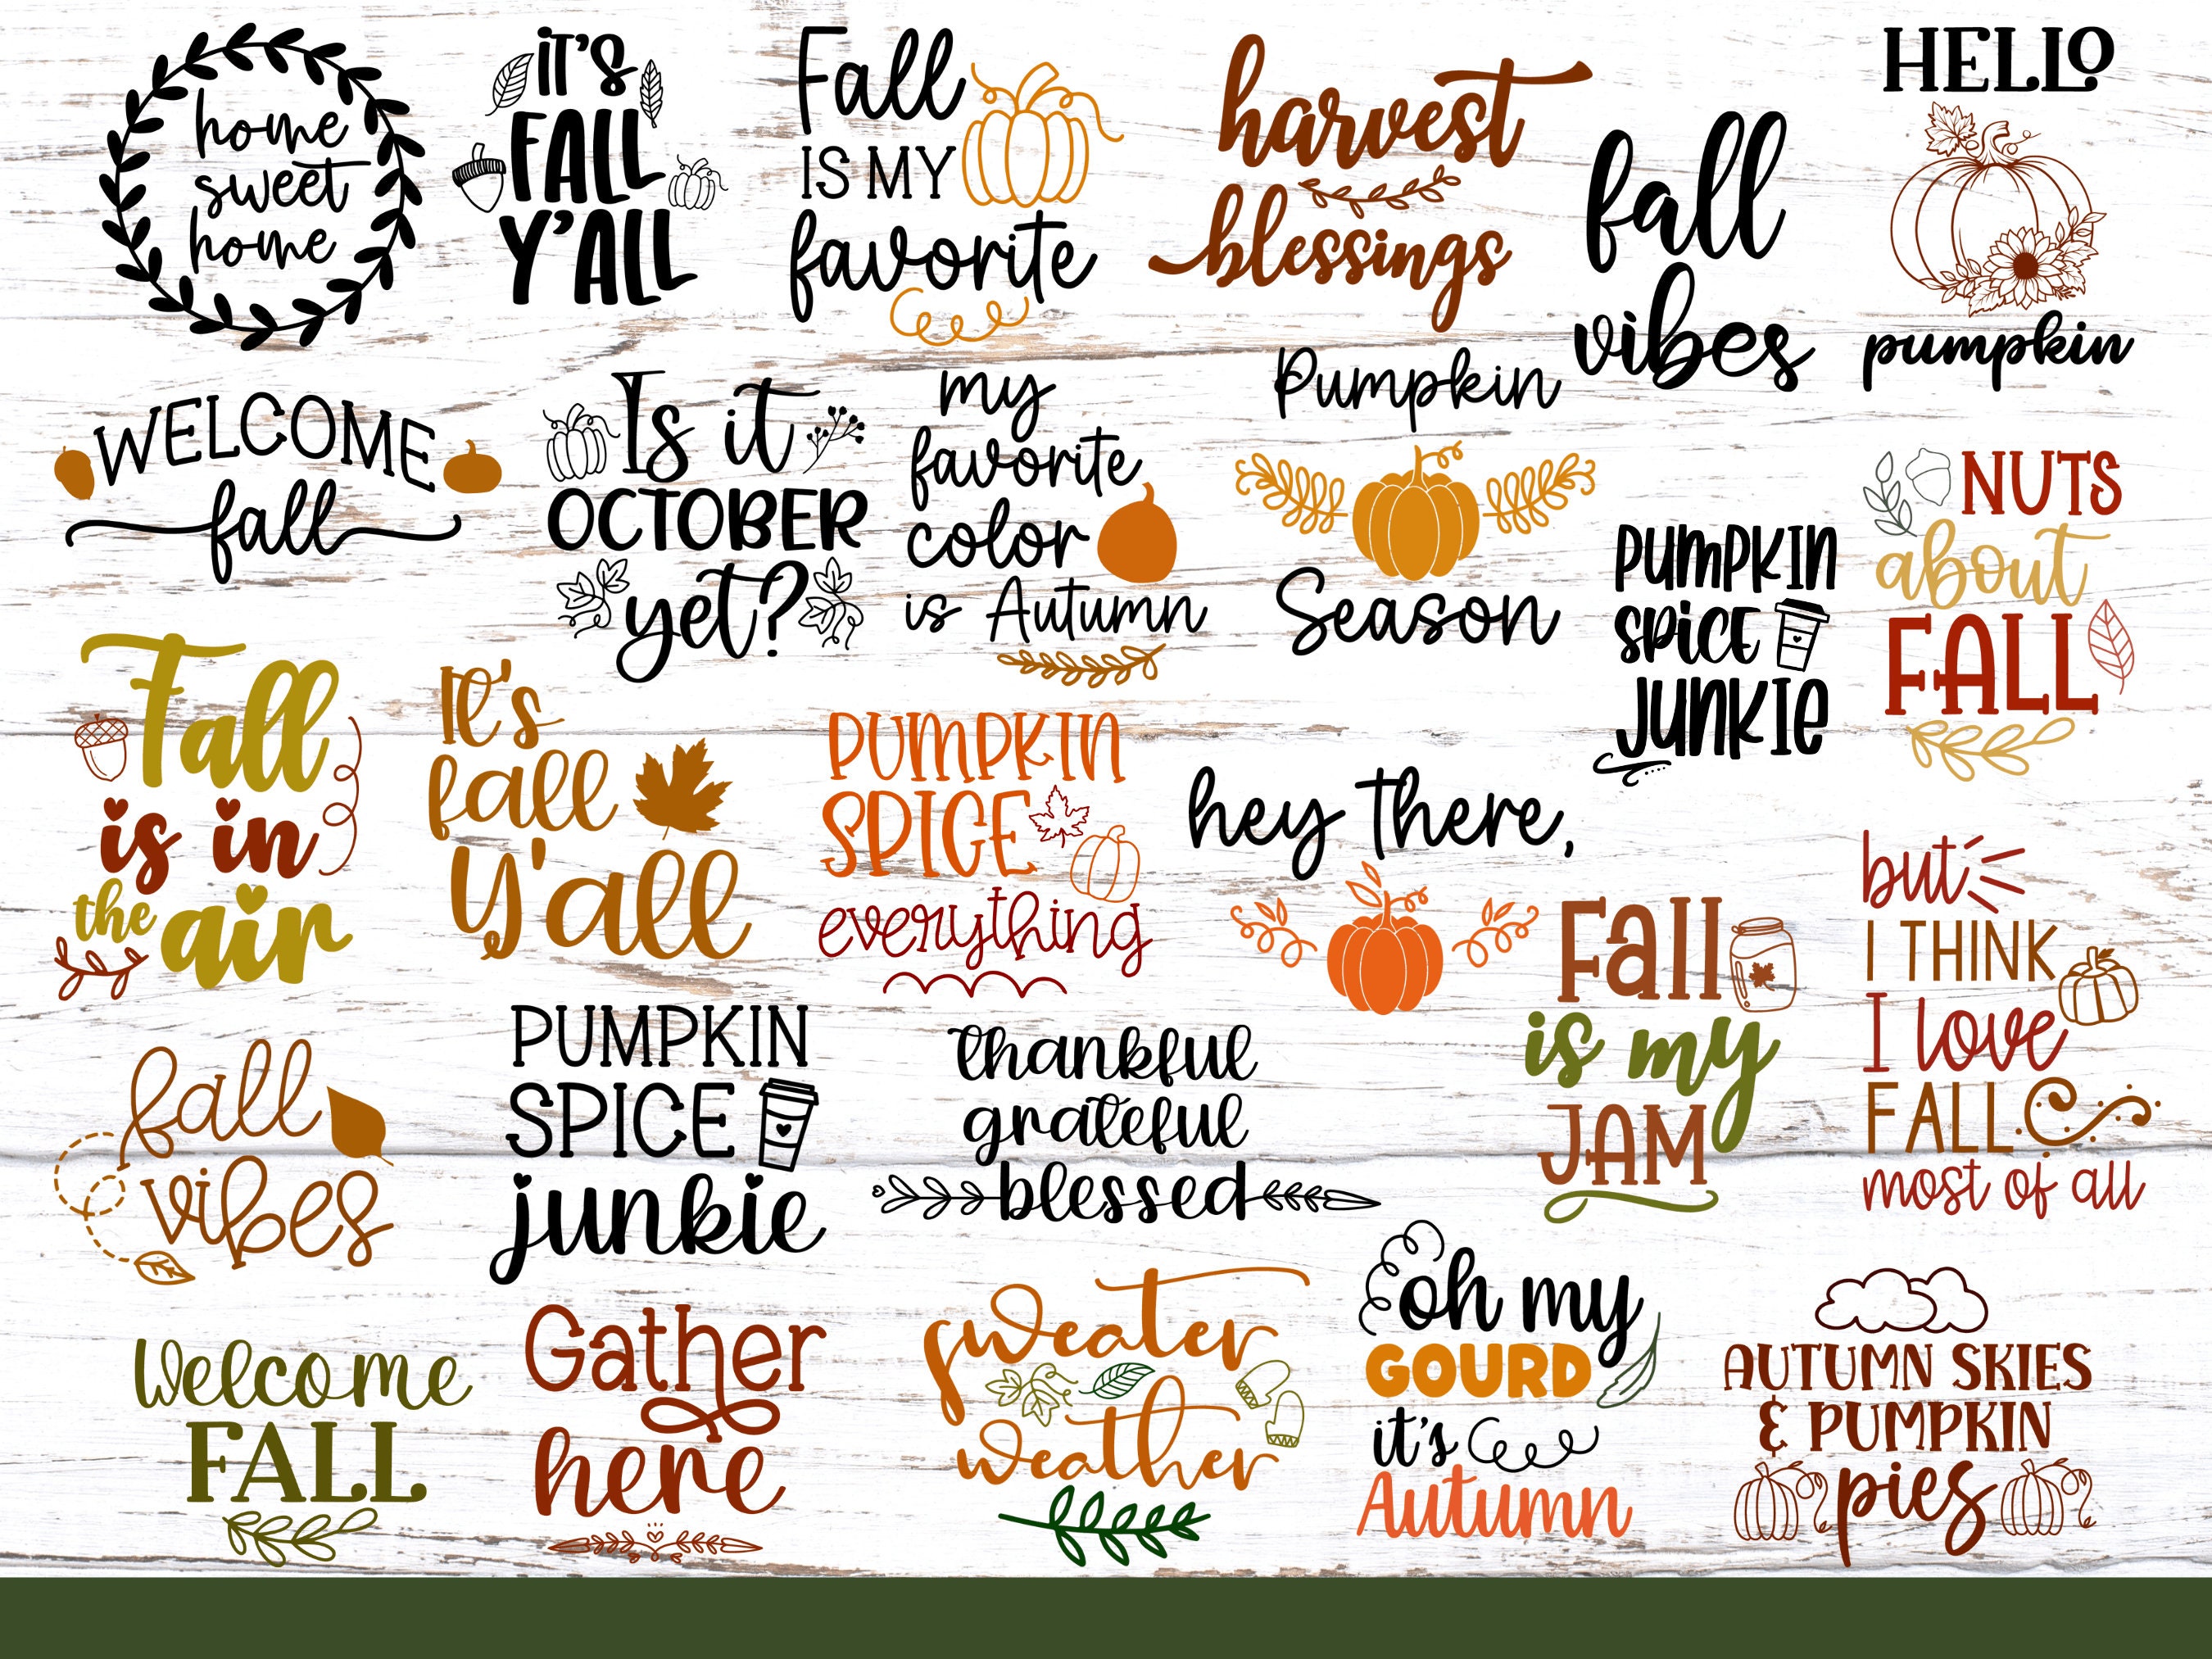 home
sweet
home
IT'S
FALL
Y'ALL
Fall
IS MY
favorite
harvest
blessings
fall
vibes
HELLO
pumpkin
WELCOME
fall
Is it
OCTOBER
yet?
my
favorite
color
is Autumn
Pumpkin
Season
PUMPKIN
SPICE
JUNKIE
NUTS
about
FALL
Fall
is in
the air
It's
fall
Y'all
PUMPKIN
SPICE
everything
hey there,
Fall
is my
JAM
but
I THINK
I love
FALL
most of all
fall
vibes
PUMPKIN
SPICE
junkie
thankful
grateful
blessed
Welcome
FALL
Gather
here
sweater
weather
oh my
GOURD
it's
Autumn
AUTUMN SKIES
& PUMPKIN
pies